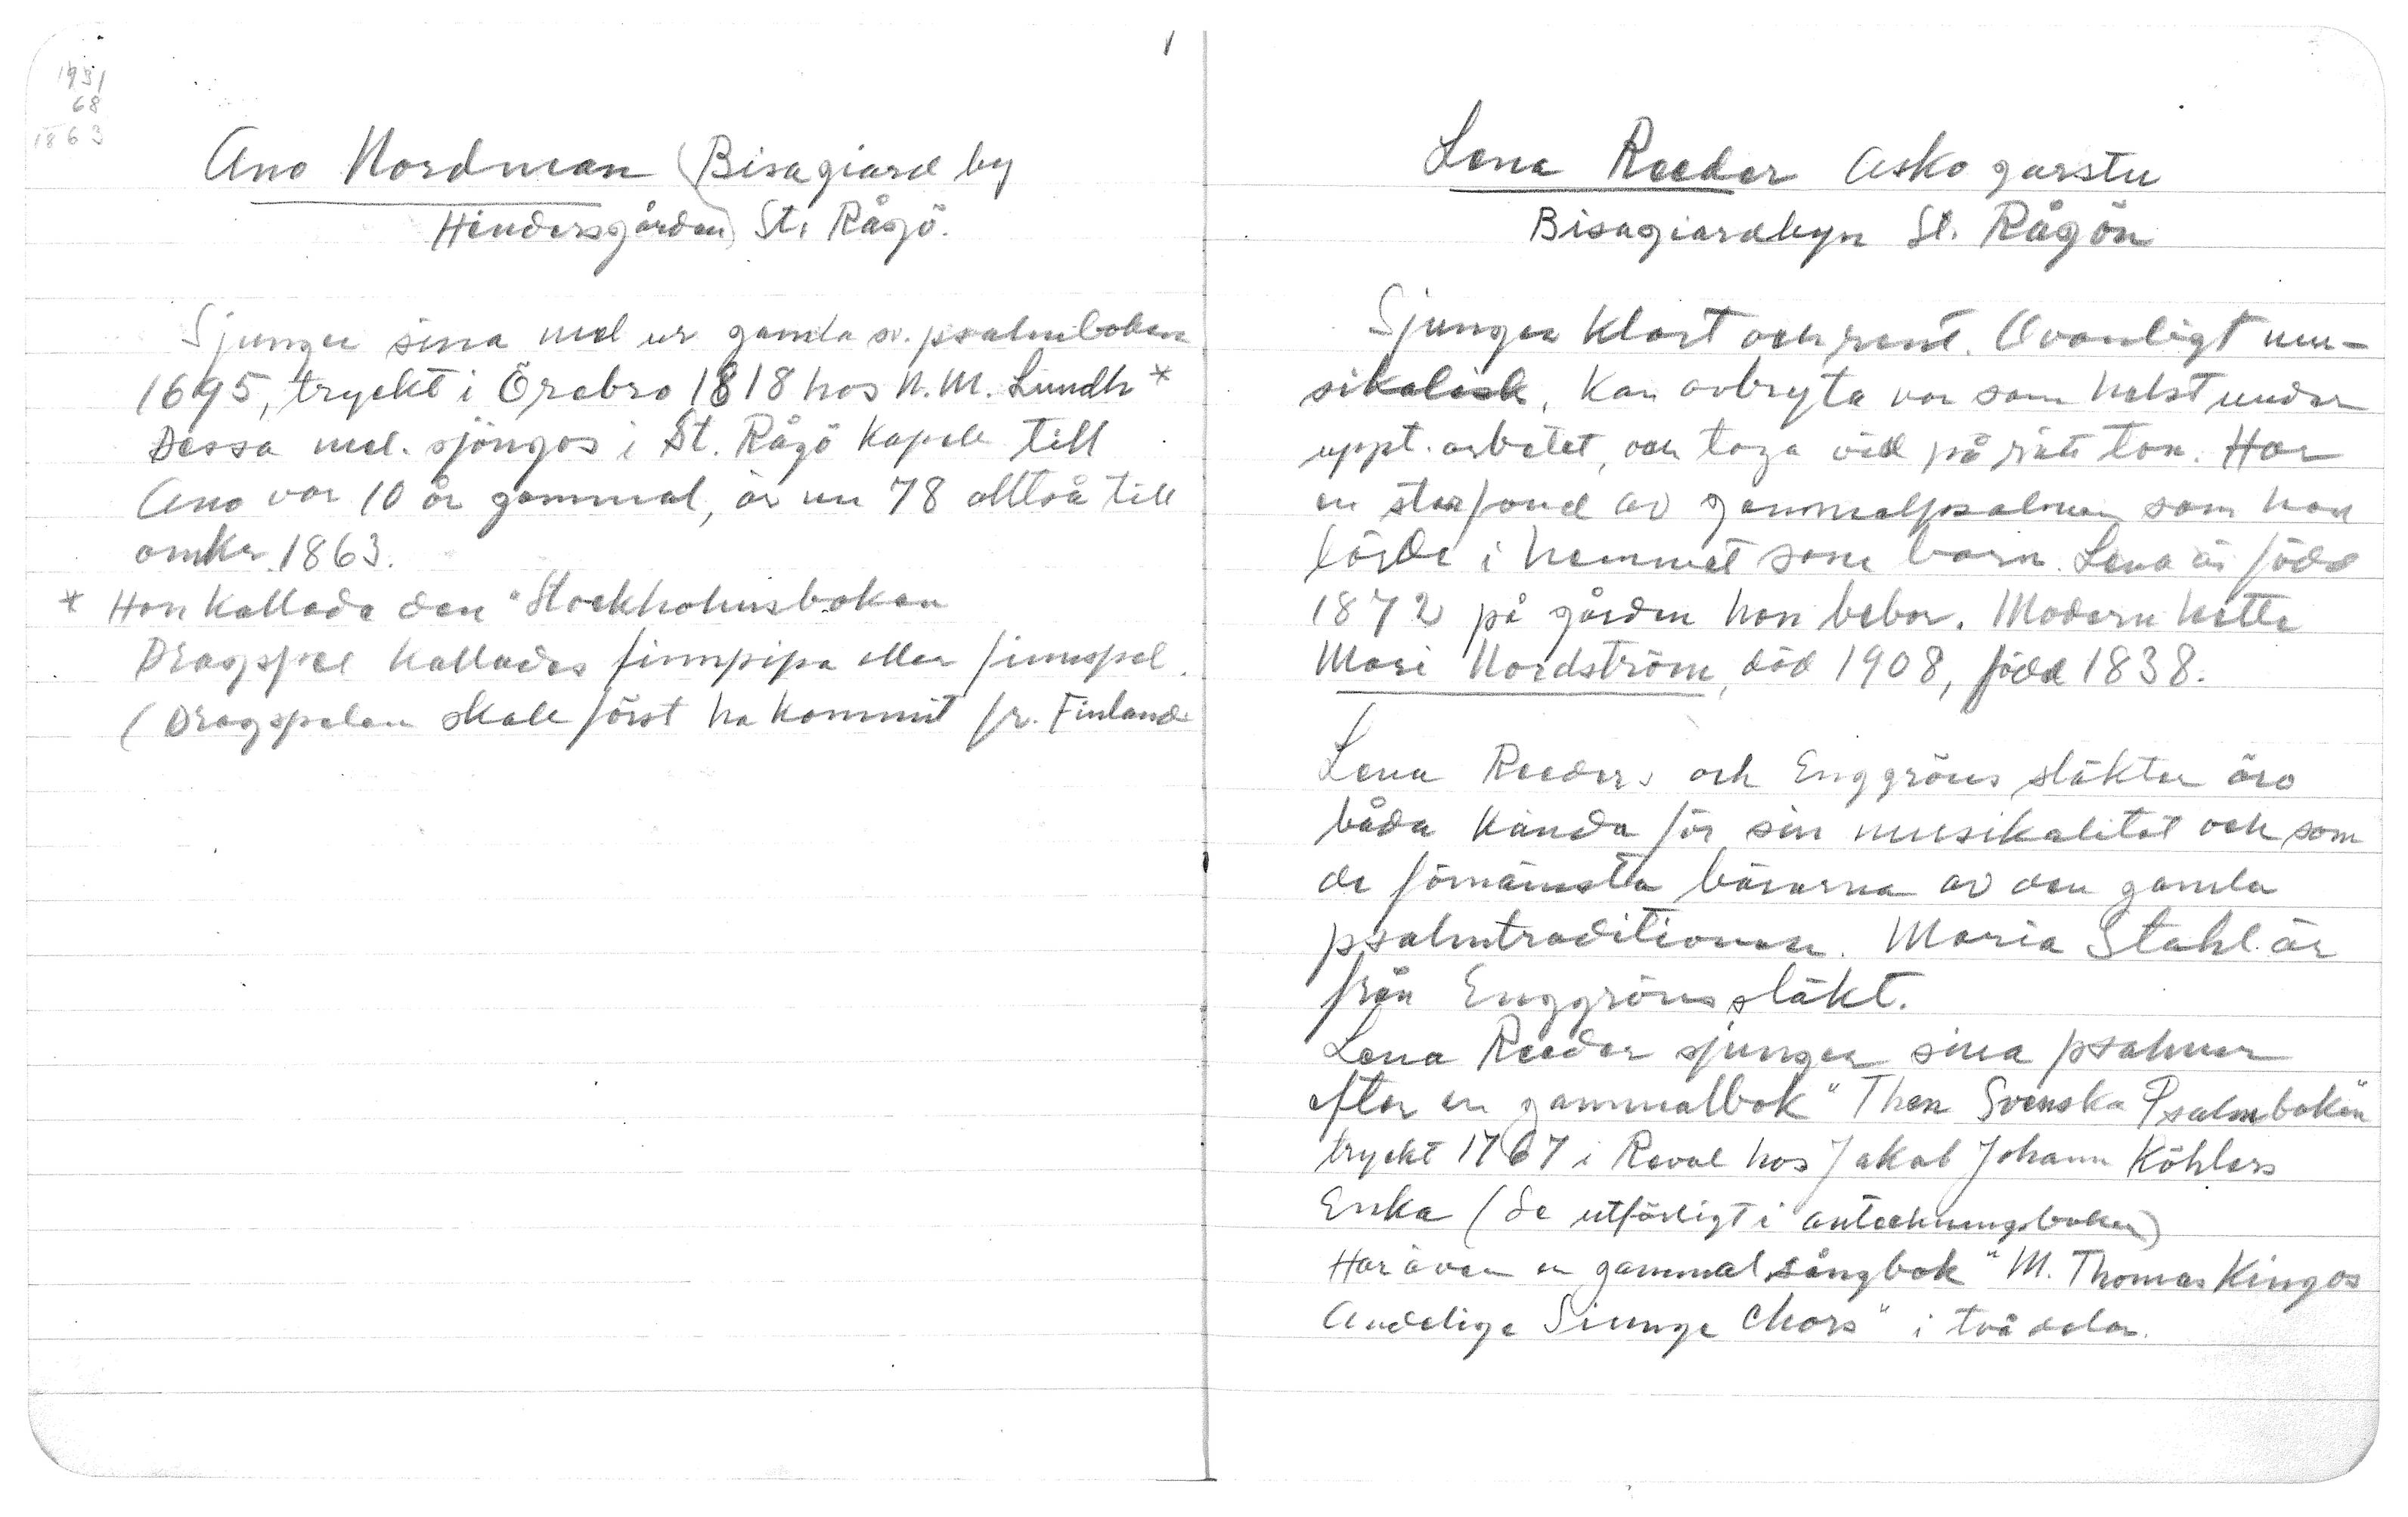 1931
68
1863
1
Ano Nordman (Bisagiard by
Hindersgården) St. Rågö.
Sjunger sina mel ur gamla sv. psalmboken
1695, tryckt i Örebro 1818 hos N. M. Lundh *
Dessa mel. sjöngos i St. Rågö kapell till
Ano var 10 år gammal, är nu 78 alltså till
omkr. 1863.
* Hon kallade den "Stockholmsboken
Dragspel kallades finnpipa eller finnspel.
(Dragspelen skall först ha kommit fr. Finland
Lena Reeder Asko garstu
Bisagiardbyn St. Rågön
Sjunger klart och rent. Ovanligt mu-
sikalisk, kan avbryta var som helst under
uppt. arbetet, och taga vid på rätt ton. Har
en stor fond av gammalpsalmer som hon
lärde i hemmet som barn. Lena är född
1872 på gården hon bebor. Modern hette
Mari Nordström, död 1908, född 1838.
Lena Reeders och Enggröns släkter äro
båda kända för sin musikalitet och som
de förnämsta bärarna av den gamla
psalmtraditionen. Maria Stahl är
från Enggröns släkt.
Lena Reeder sjunger sina psalmer
efter en gammalbok "Then Svenska Psalmboken"
tryckt 1767 i Reval hos Jakob Johann Köhlers
Enka (Se utförligt i anteckningsboken)
Har även en gammal sångbok "M. Thomas Kingos
Andelige Siunge Chors" i två delar.